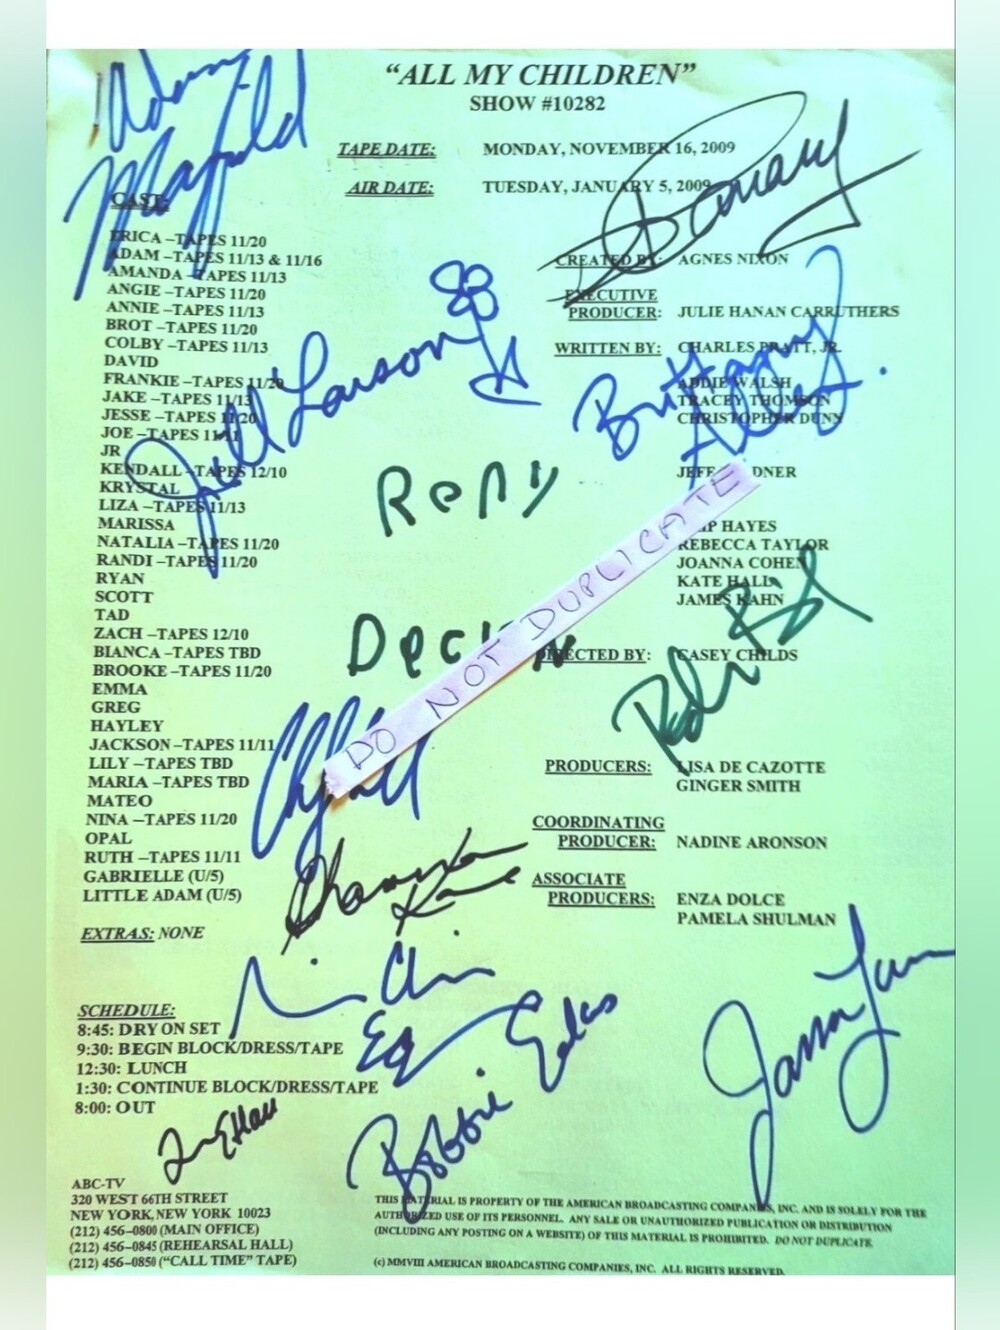 "ALL MY CHILDREN"
SHOW #10282
TAPE DATE: MONDAY, NOVEMBER 16, 2009
AIR DATE: TUESDAY, JANUARY 5, 2009
CAST:
ERICA –TAPES 11/20
ADAM –TAPES 11/13 & 11/16
AMANDA –TAPES 11/13
ANGIE –TAPES 11/20
ANNIE –TAPES 11/13
BROT –TAPES 11/20
COLBY –TAPES 11/13
DAVID
FRANKIE –TAPES 11/20
JAKE –TAPES 11/13
JESSE –TAPES 11/20
JOE –TAPES 11/11
JR
KENDALL –TAPES 12/10
KRYSTAL
LIZA –TAPES 11/13
MARISSA
NATALIA –TAPES 11/20
RANDI –TAPES 11/20
RYAN
SCOTT
TAD
ZACH –TAPES 12/10
BIANCA –TAPES TBD
BROOKE –TAPES 11/20
EMMA
GREG
HAYLEY
JACKSON –TAPES 11/11
LILY –TAPES TBD
MARIA –TAPES TBD
MATEO
NINA –TAPES 11/20
OPAL
RUTH –TAPES 11/11
GABRIELLE (U/5)
LITTLE ADAM (U/5)
EXTRAS: NONE
SCHEDULE:
8:45: DRY ON SET
9:30: BEGIN BLOCK/DRESS/TAPE
12:30: LUNCH
1:30: CONTINUE BLOCK/DRESS/TAPE
8:00: OUT
ABC-TV
320 WEST 66TH STREET
NEW YORK, NEW YORK 10023
(212) 456–0800 (MAIN OFFICE)
(212) 456–0845 (REHEARSAL HALL)
(212) 456–0850 ("CALL TIME" TAPE)
CREATED BY: AGNES NIXON
EXECUTIVE
PRODUCER: JULIE HANAN CARRUTHERS
WRITTEN BY: CHARLES PRATT, JR.
ADDIE WALSH
TRACEY THOMSON
CHRISTOPHER DUNN
HAYES
REBECCA TAYLOR
JOANNA COHEN
KATE HALL
JAMES KAHN
DIRECTED BY: CASEY CHILDS
PRODUCERS: LISA DE CAZOTTE
GINGER SMITH
COORDINATING
PRODUCER: NADINE ARONSON
ASSOCIATE
PRODUCERS: ENZA DOLCE
PAMELA SHULMAN
THIS MATERIAL IS PROPERTY OF THE AMERICAN BROADCASTING COMPANIES, INC. AND IS SOLELY FOR THE
AUTHORIZED USE OF ITS PERSONNEL. ANY SALE OR UNAUTHORIZED PUBLICATION OR DISTRIBUTION
(INCLUDING ANY POSTING ON A WEBSITE) OF THIS MATERIAL IS PROHIBITED. DO NOT DUPLICATE.
(c) MMVIII AMERICAN BROADCASTING COMPANIES, INC. ALL RIGHTS RESERVED.
Adam
Mayfield
Jill Larson
Brittany
Allen
DO NOT DUPLICATE
Bobbie Eakes